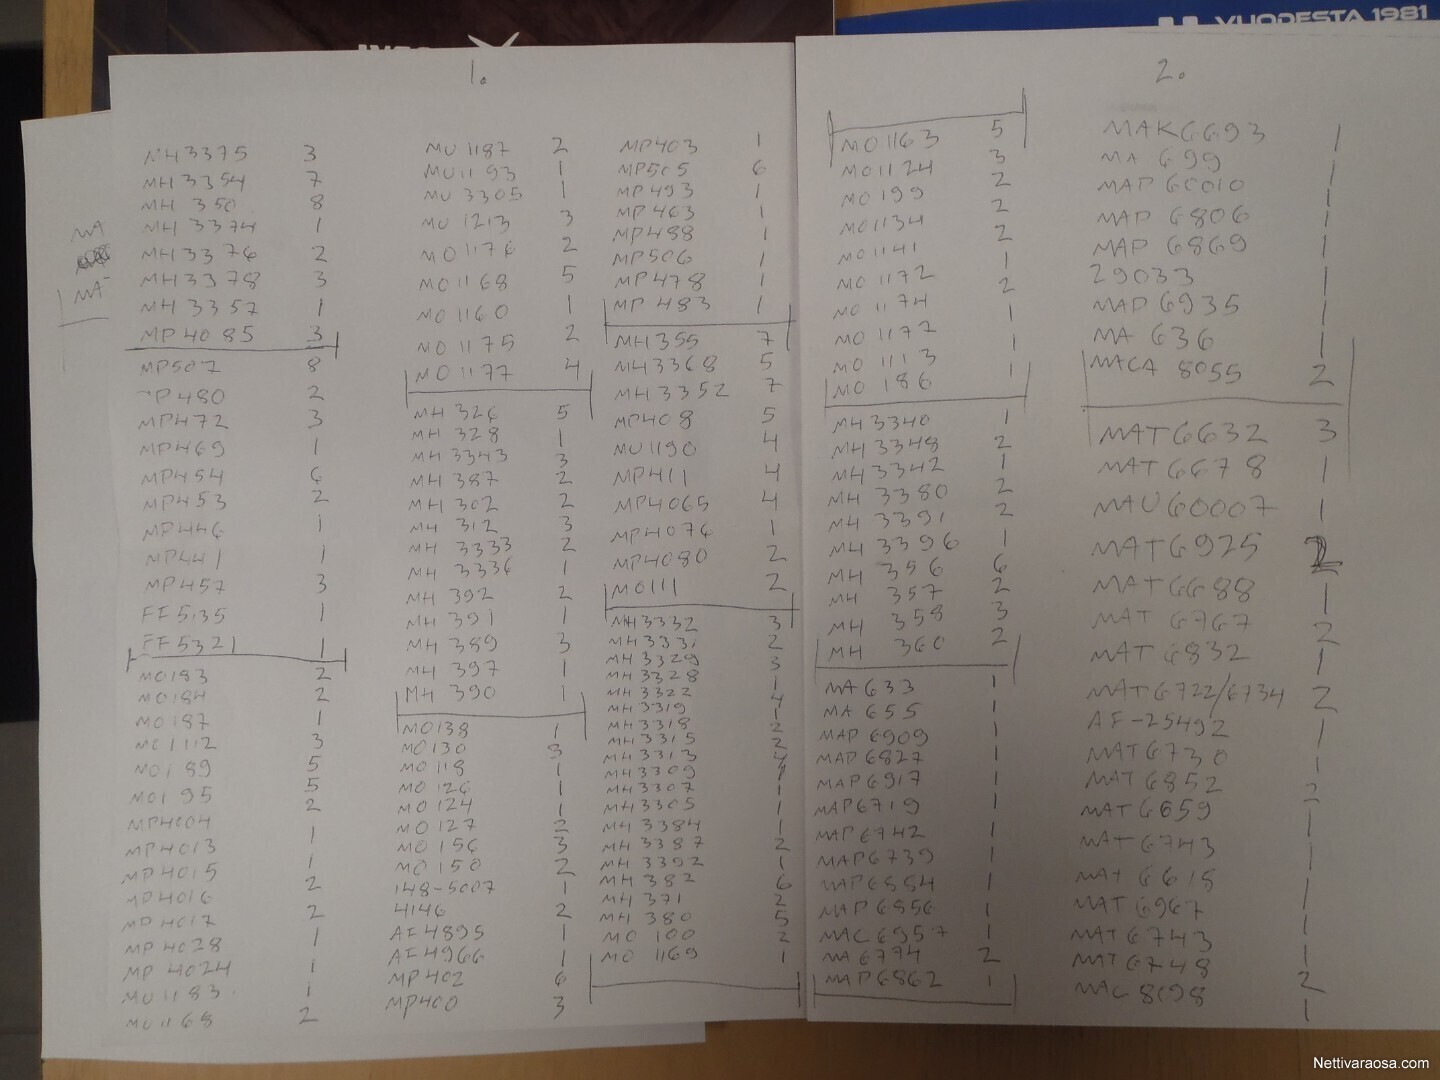 VUODESTA 1981
1.
MA
MA
MH3375 3
MH3354 7
MH 350 8
MH 3374 1
MH3376 2
MH3378 3
MH3357 1
MP4085 3
MP507 8
MP480 2
MP472 3
MP469 1
MP454 6
MP453 2
MP446 1
MP441 1
MP457 3
FF5135 1
FF5321 1
MO183 2
MO184 2
MO187 1
MO1112 3
MO189 5
MO195 5
MP4004 2
MP4013 1
MP4015 1
MP4016 2
MP4017 2
MP4028 1
MP 4024 1
MU1183 1
MU1168 2
MU1187 2
MU1193 1
MU 3305 1
MU 1213 3
MO1176 2
MO1168 5
MO1160 1
MO1175 2
MO1177 4
MH 326 5
MH 328 1
MH 3343 3
MH 387 2
MH 302 2
MH 312 3
MH 3333 2
MH 3336 1
MH 392 2
MH 391 1
MH 389 3
MH 397 1
MH 390 1
MO138 1
MO130 3
MO118 1
MO 126 1
MO 124 1
MO 127 2
MO 156 3
MO 150 2
148-5007 1
4146 2
AF4895 1
AF4966 1
MP402 6
MP400 3
MP403 1
MP505 6
MP493 1
MP463 1
MP488 1
MP506 1
MP478 1
MP 483 1
MH355 7
MH3368 5
MH3352 7
MP408 5
MU1190 4
MP411 4
MP4065 4
MP4076 1
MP4080 2
MO111 2
MH3332 3
MH3331 2
MH3329 3
MH3328 1
MH3322 4
MH3319 1
MH3318 2
MH3315 2
MH3313 4
MH3309 1
MH3307 1
MH3305 1
MH3384 1
MH3387 2
MH3392 1
MH 382 6
MH 371 2
MH 380 5
MO 100 2
MO 1169 1
2.
MO1163 5
MO1124 3
MO199 2
MO1134 2
MO1141 2
MO1172 1
MO1174 2
MO1177 1
MO1113 1
MO 186 1
MH3340 1
MH3348 2
MH3342 1
MH 3380 2
MH 3391 2
MH 3396 1
MH 356 6
MH 357 2
MH 358 3
MH 360 2
MA633 1
MA 655 1
MAP 6909 1
MAP 6827 1
MAP6917 1
MAP6719 1
MAP 6742 1
MAP6739 1
MAP6884 1
MAP 6856 1
MAC6957 1
MA6774 2
MAP6862 1
MAK6693 1
MA 699 1
MAP 60010 1
MAP 6806 1
MAP 6869 1
29033 1
MAP 6935 1
MA 636 1
MACA 8055 2
MAT6632 3
MAT6678 1
MAU60007 1
MAT6925 2
MAT6688 1
MAT 6767 2
MAT 6832 1
MAT6722/6734 2
AF-25492 1
MAT6730 1
MAT 6852 2
MAT6659 1
MAT6743 1
MAT 6618 1
MAT 6967 1
MAT6743 1
MAT 6748 2
MAC 8098 1
Nettivaraosa.com